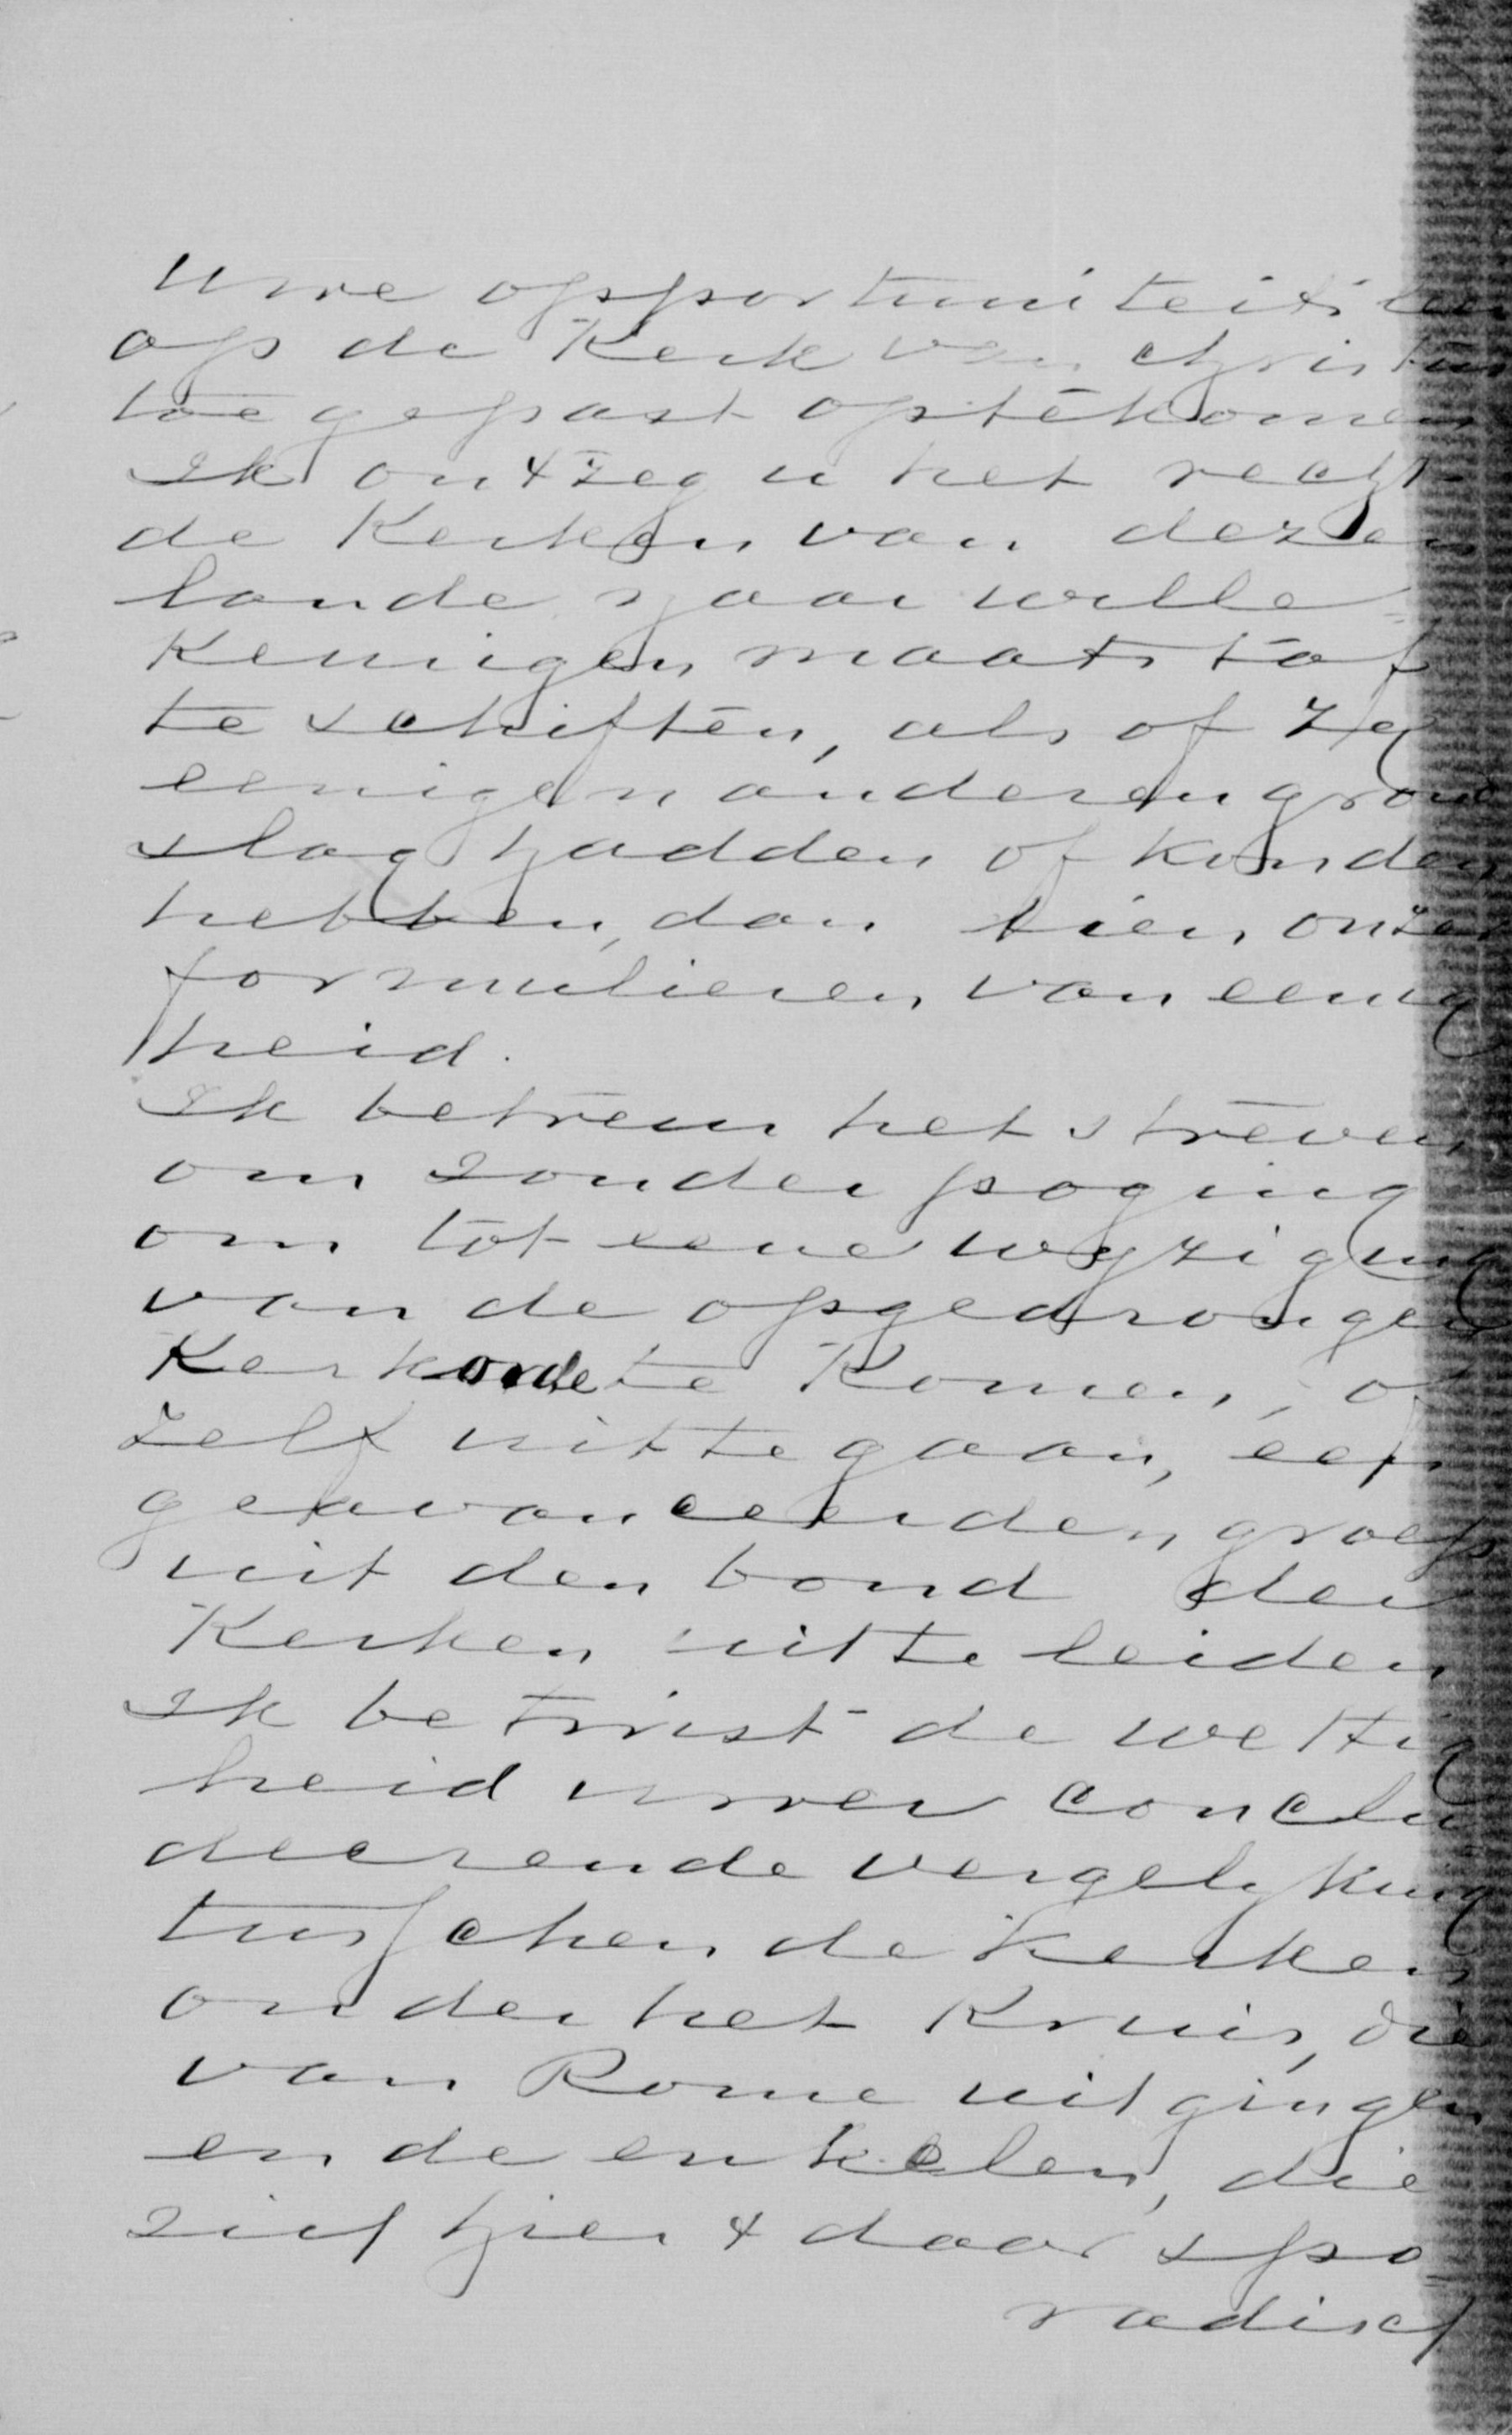 Uwe opportuniteitsleer
op de Kerk van Christus
toegepast optekomen
Ik ontzeg u het recht
de Kerken van dezen
lande naar wille=
keurigen maatstaf
te schiften, als of zy
eenigen anderen grond
slag hadden of konden
hebben, dan dien onzer
formulieren van eenig
heid.
Ik betreur het streven
om zonder poging
om tot eene wyziging
van de opgedrongen
Kerkorde te komen, of
zelf uittegaan, een
geavanceerden groep
uit den bond der
Kerken uitteleiden
Ik betwist de wettig
heid uwer conclu
deerende vergelyking
tusschen de Kerken
onder het Kruis, die
van Rome uitgingen
en de enkelen, die
zich hier & daar spo=
radisch